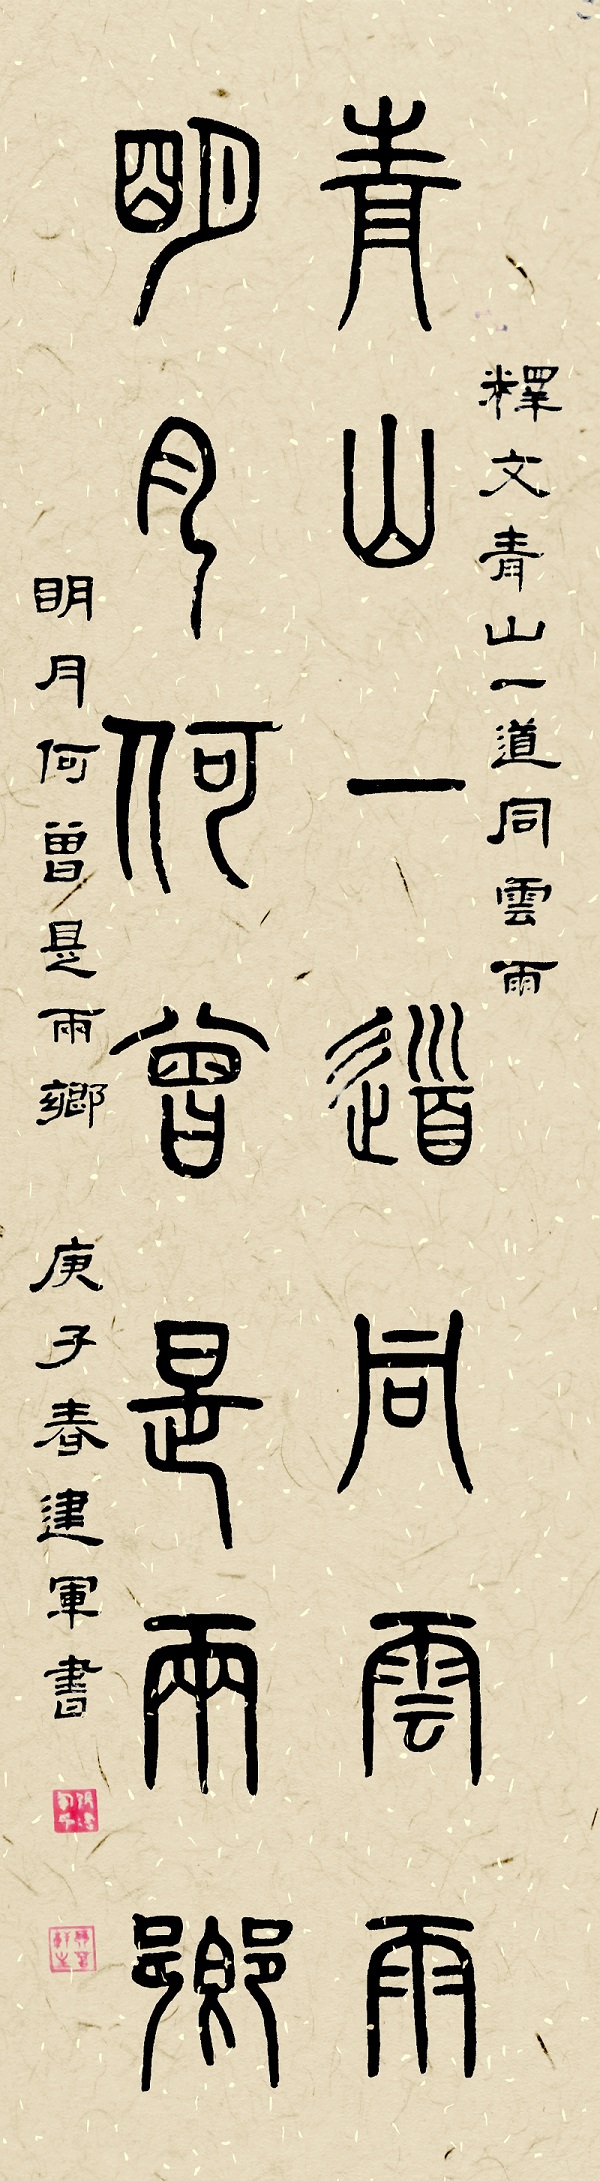 釋文青山一道同雲雨
青山一道同雲雨
明月何曾是兩鄉
明月何曾是兩鄉 庚子春建軍書